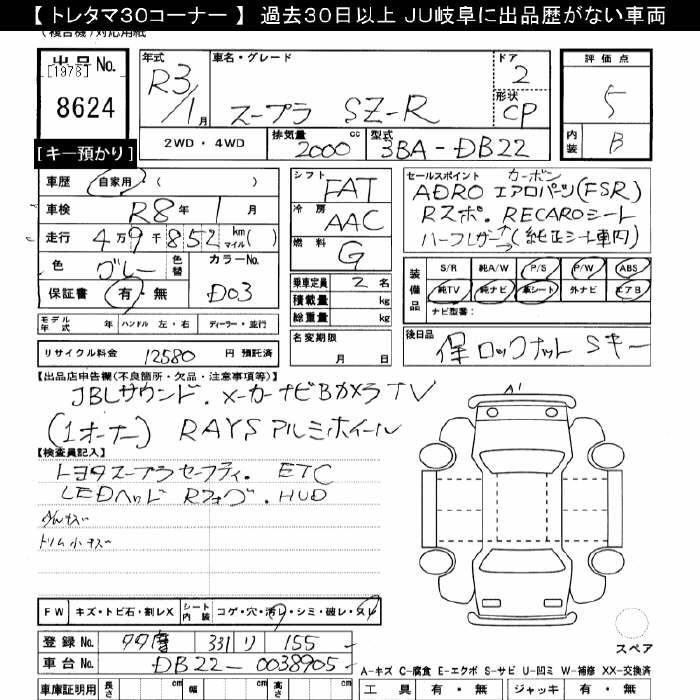 【 トレタマ30コーナー 】 過去30日以上 JU岐阜に出品歴がない車両
(複合機)対応用紙
出品No. [1978] 8624
[キー預かり]
年式 R3/1月
車名・グレード スープラ SZ-R
ドア 2
形状 CP
評価点 5
内装 B
2WD・4WD
排気量 2000 cc
型式 3BA-DB22
車歴 自家用・( )
車検 R8年 1月
走行 4万9千852 km マイル( )
色 グレー 色替
カラーNo. D03
保証書 有・無
シフト FAT
冷房 AAC
燃料 G
乗車定員 2名
積載量 kg
総重量 kg
名変期限 月 日
セールスポイント カーボン
ADRO エアロパーツ(FSR)
Rスポ. RECAROシート
ハーフレザー(純正シート車内)
装備品
S/R 純A/W P/S P/W ABS
純TV 純ナビ 革シート 外ナビ エアB
ナビ型番:
モデル年式 年 ハンドル 左・右 ディーラー・並行
リサイクル料金 12580 円 預託済
後日品 保 ロックナット Sキー
【出品店申告欄(不良箇所・欠品・注意事項等)】
JBLサウンド. メーカーナビBカメラTV
(1オーナー) RAYSアルミホイール
【検査員記入】
トヨタスープラセーフティ. ETC
LEDヘッド Rフォグ. HUD
トリム小キズ
FW キズ・トビ石・割レX シート内装 コゲ・穴・汚レ・シミ・破レ・スレ
登録No. 331 リ 155
車台No. DB22-0038905
スペア
A-キズ C-腐食 E-エクボ S-サビ U-凹ミ W-補修 XX-交換済
車庫証明用 長さ cm 幅 cm 高さ cm
工具 有・無 ジャッキ 有・無